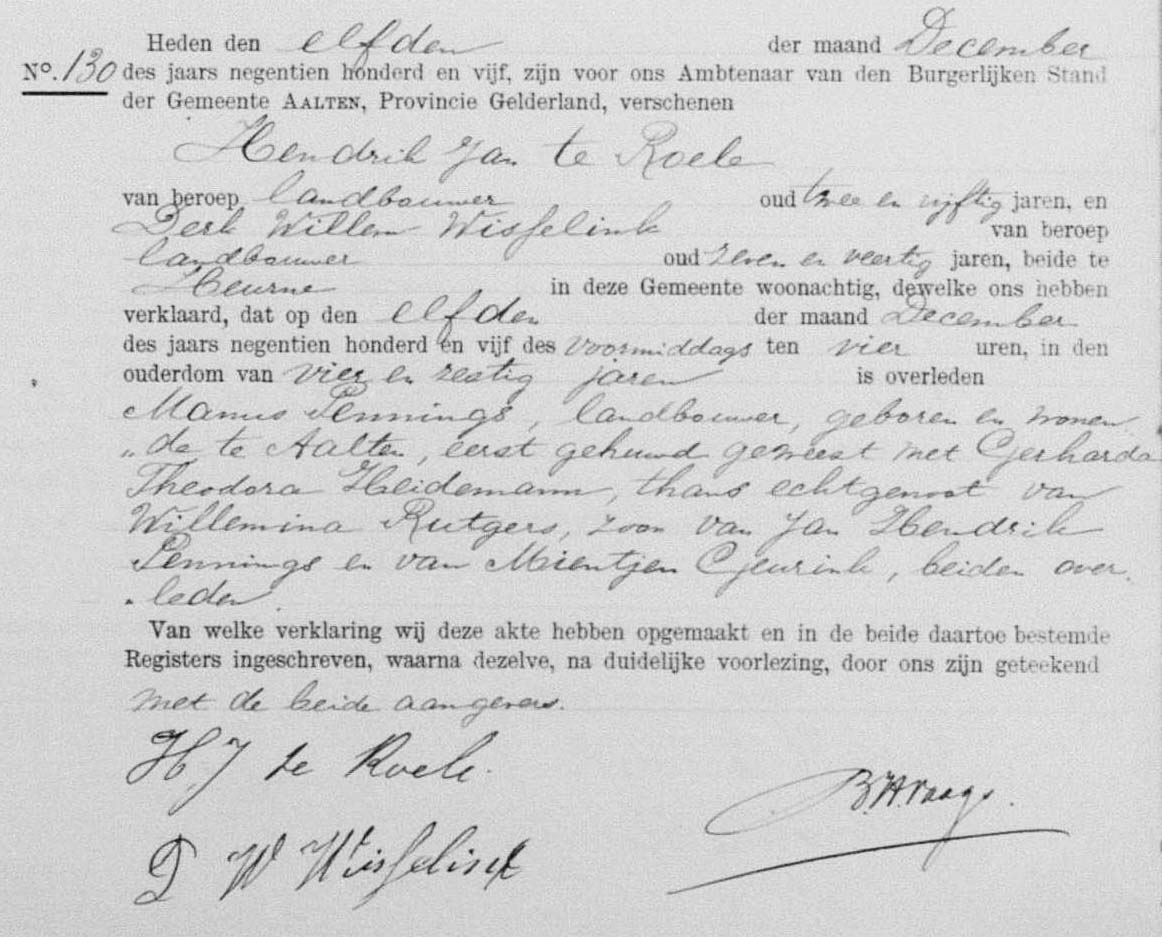 Heden den elfden der maand December
No. 130 des jaars negentien honderd en vijf, zijn voor ons Ambtenaar van den Burgerlijken Stand
der Gemeente AALTEN, Provincie Gelderland, verschenen
Hendrik Jan te Roele
van beroep landbouwer oud twee en vijftig jaren, en
Derk Willem Wisselink van beroep
landbouwer oud zeven en veertig jaren, beide te
Heurne in deze Gemeente woonachtig, dewelke ons hebben
verklaard, dat op den elfden der maand December
des jaars negentien honderd en vijf des voormiddags ten vier uren, in den
ouderdom van vier en zestig jaren is overleden
Manus Pennings, landbouwer, geboren en wonen
„de te Aalten, eerst gehuwd geweest met Gerharda
Theodora Heidemann, thans echtgenoot van
Willemina Rutgers, zoon van Jan Hendrik
Pennings en van Mientjen Geurink, beiden over
leden.
Van welke verklaring wij deze akte hebben opgemaakt en in de beide daartoe bestemde
Registers ingeschreven, waarna dezelve, na duidelijke voorlezing, door ons zijn geteekend
met de beide aangevers.
H J te Roele.
D W Wisselink